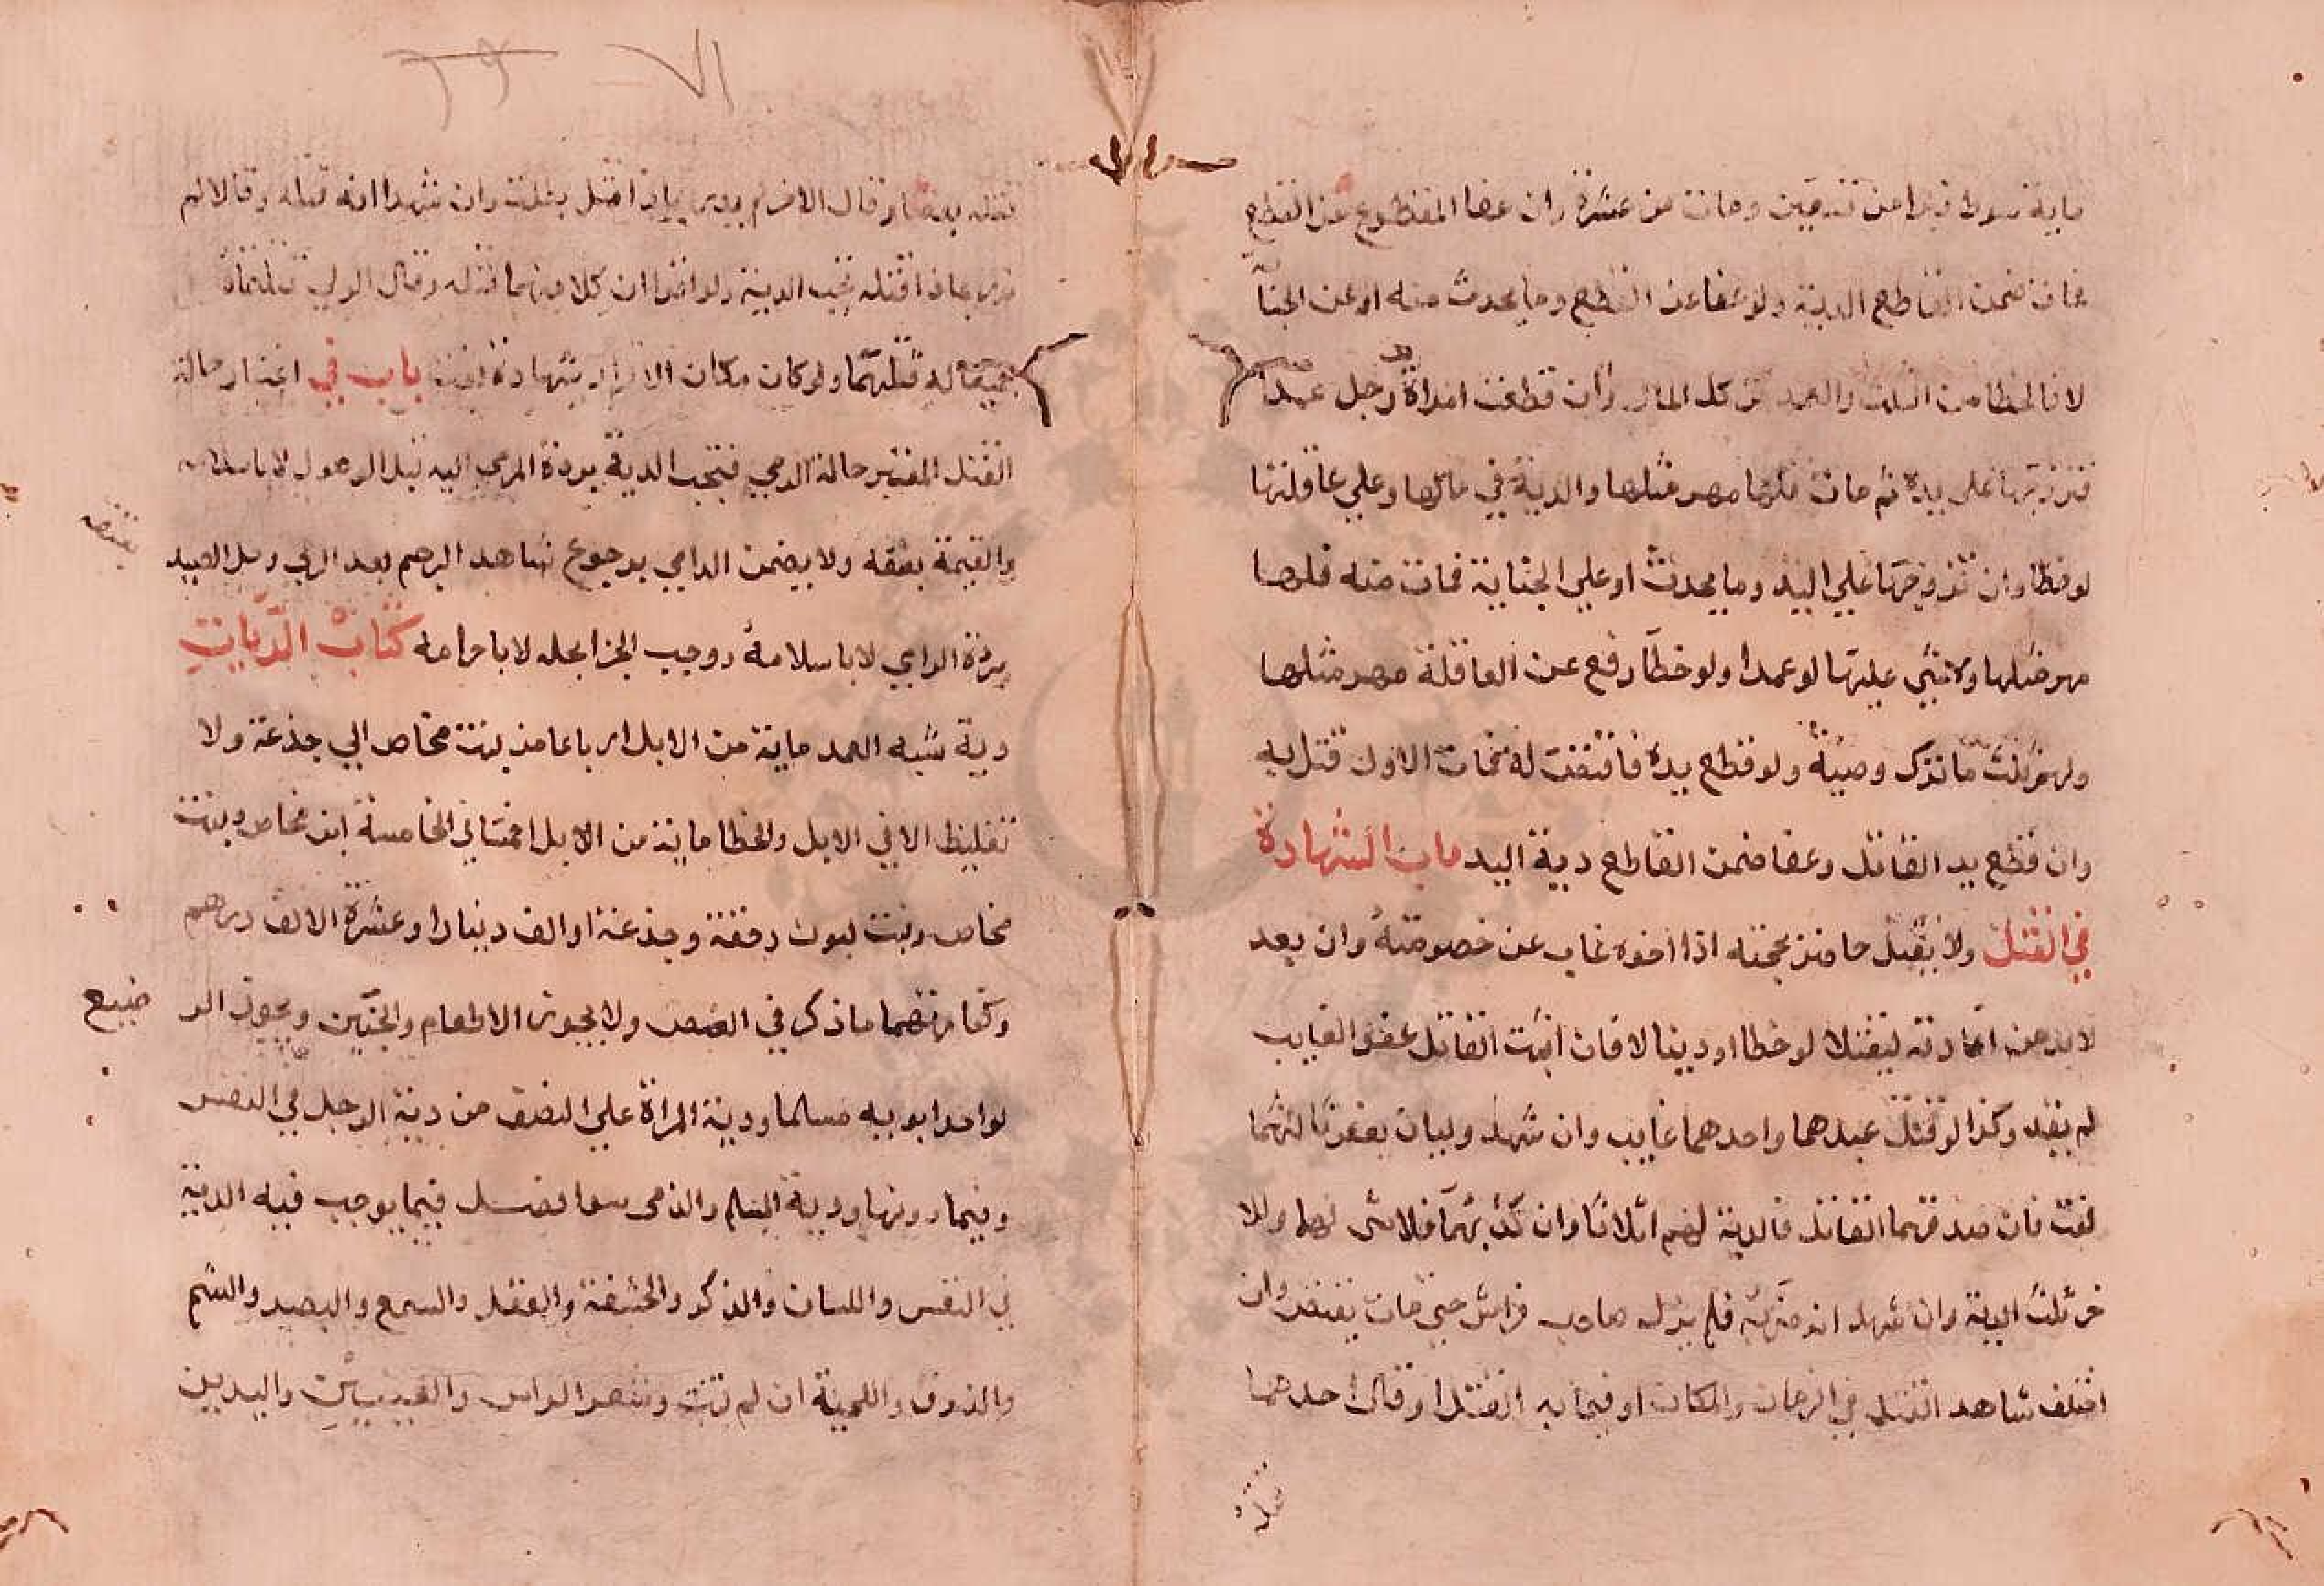 ماية سوط فبرا من تسعين ومات من عشرة وان عفا المقطوع عن القطع
فمات ضمن القاطع الدية ولو عفا عن القطع وما يحدث منه او عن الجناية
لا فالخطا من الثلث والعمد من كل المال وان قطعت امراة يد رجل عمدا
فتزوجها على يده ثم مات فلها مهر مثلها والدية في مالها وعلي عاقلتها
لو خطا وان تزوجها علي اليد وما يحدث او علي الجناية فمات منه فلها
مهر مثلها ولا شي عليها لو عمدا ولو خطا رفع عن العاقلة مهر مثلها
ولهم ثلث ما ترك وصية ولو قطع يده فاقتص له فمات الاول قتل به
وان قطع يد القاتل وعفا ضمن القاطع دية اليد باب الشهادة
في القتل ولا يقتل حاضر بحجته اذا اخوه غاب عن خصومته وان يعد
لا بد من اعادته ليقتلا لو خطا او دينا لا فان اثبت القاتل عفو الغايب
لم يقد وكذا لو قتل عبدهما واحدهما غايب وان شهد وليان بعفو ثالثهما
لغت فان صدقهما القاتل فالدية لهم اثلاثا وان كذبهما فلا شي لهما وللا
خر ثلث الدية وان شهد انه ضربه فلم يزل صاحب فراش حتي مات يقتص وان
اختلف شاهد القتل في الزمان والمكان او فيما به القتل او قال احدهما
قتله
قتله بعصا وقال الاخر لم يدر بماذا قتل بطلت وان شهدا انه قتله وقالا لم
ندر بماذا قتله تجب الدية ولو اقرا ان كلا منهما قتله وقال الولي قتلتماه
جميعا له قتلهما ولو كان مكان الاقرار شهادة لغت باب في اعتبار حالة
القتل المعتبر حالة الرمي فتجب الدية بردة المرمي اليه قبل الوصول لا باسلامه
والقيمة بعتقه ولا يضمن الرامي برجوع شاهد الرجم بعد الرمي وحل الصيد
بردة الرامي لا باسلامه ووجب الجزا بحله لا باحرامه كتاب الديات
دية شبه العمد ماية من الابل ارباعا من بنت مخاض الي جذعة ولا
تغليظ الا في الابل والخطا ماية من الابل اخماسا في الخامسة ابن مخاض وبنت
مخاض وبنت لبون وحقة وجذعة او الف دينارا وعشرة الالف درهم
وكفارتهما ما ذكر في النص ولا يجوز الاطعام والجنين ويجوز الر
ضيع
لو احد ابويه مسلما ودية المراة علي النصف من دية الرجل في النفس
وفيما دونها ودية المسلم والذمي سوا فصل فيما يوجب فيه الدية
في النفس واللسان والذكر والحشفة والعقل والسمع والبصر والشم
والذوق واللحية ان لم تنبت وشعر الراس والعينين واليدين